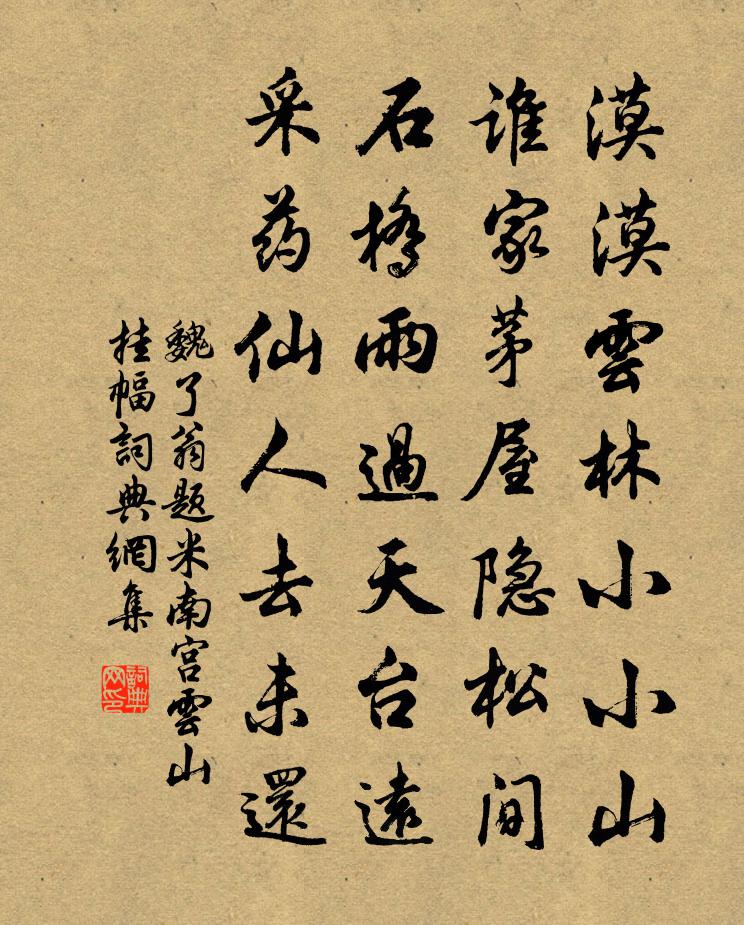 漠漠雲林小小山
谁家茅屋隐松间
石橋雨過天台遠
采药仙人去未還
魏了翁题米南宫雲山
挂幅詞典網集
詞典网印